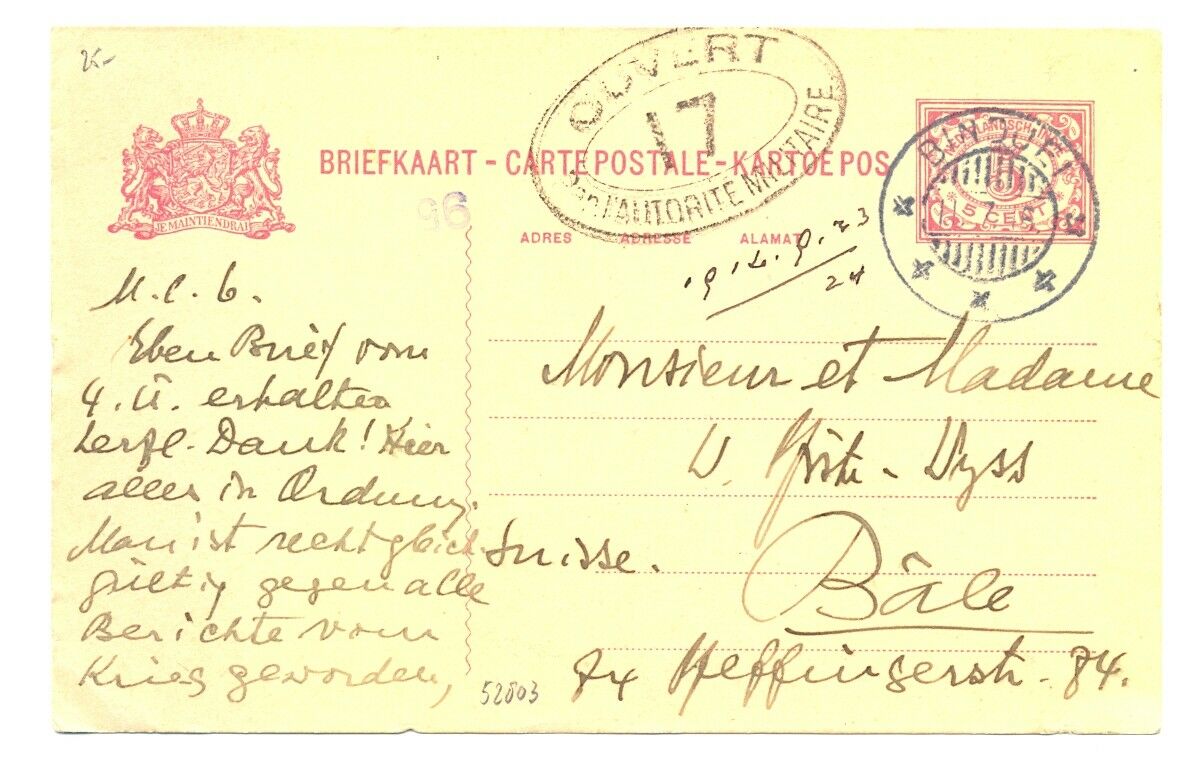 25-
OUVERT
17
PAR L'AUTORITE MILITAIRE
BRIEFKAART - CARTE POSTALE - KARTOE POS
JE MAINTIENDRAI
96
ADRES ADRESSE ALAMAT
5 CENT
24
M. l. G.
Eben Brief vom
4. II. erhalten
herzl. Dank! Hier
alles in Ordnung.
Man ist recht gleich-
gültig gegen alle
Berichte vom
Krieg geworden,
Monsieur et Madame
W. - Wyss
Suisse.
Bâle
Pfeffingerstr. 84.
52803